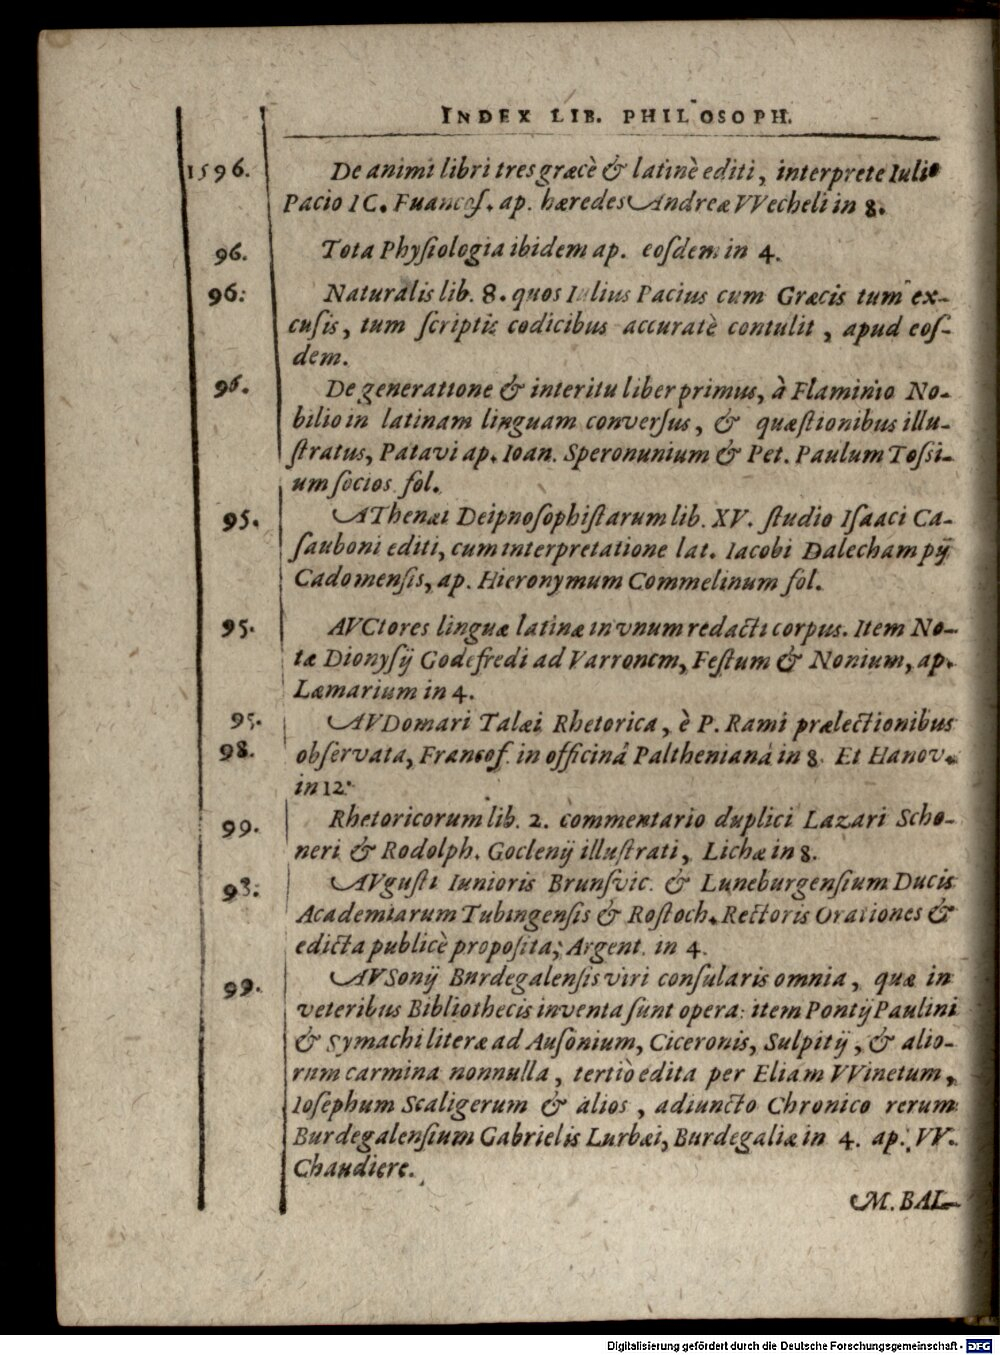 INDEX LIB. PHILOSOPH.
1596. De animi libri tres græcè & latinè editi, interprete Iulio
Pacio IC. Fuancof. ap. hæredes Andreæ VVecheli in 8.
96. Tota Physiologia ibidem ap. eosdem in 4.
96. Naturalis lib. 8. quos Iulius Pacius cum Græcis tum ex-
cusis, tum scriptis codicibus accuratè contulit, apud eos-
dem.
96. De generatione & interitu liber primus, à Flaminio No-
bilio in latinam linguam conversus, & quæstionibus illu-
stratus, Patavi ap. Ioan. Speronunium & Pet. Paulum Tossi-
um socios fol.
95. AThenæi Deipnosophistarum lib. XV. studio Isaaci Ca-
sauboni editi, cum interpretatione lat. Iacobi Dalechampij
Cadomensis, ap. Hieronymum Commelinum fol.
95. AVCtores linguæ latinæ in vnum redacti corpus. Item No-
tæ Dionysij Godefredi ad Varronem, Festum & Nonium, ap.
Læmarium in 4.
95. AVDomari Talæi Rhetorica, è P. Rami prælectionibus
98. observata, Francof. in officinâ Paltheniana in 8. Et Hanov.
in 12.
99. Rhetoricorum lib. 2. commentario duplici Lazari Scho-
neri & Rodolph. Goclenij illustrati, Lichæ in 8.
98. AVgusti Iunioris Brunsvic. & Luneburgensium Ducis
Academiarum Tubingensis & Rostoch. Rectoris Orationes &
edicta publicè proposita; Argent. in 4.
99. AVSonij Burdegalensis viri consularis omnia, quæ in
veteribus Bibliothecis inventa sunt opera: item Pontij Paulini
& Symachi literæ ad Ausonium, Ciceronis, Sulpitij, & alio-
rum carmina nonnulla, tertiò edita per Eliam VVinetum,
Iosephum Scaligerum & alios, adiuncto Chronico rerum
Burdegalensium Gabrielis Lurbæi, Burdegaliæ in 4. ap. VV.
Chaudiere.
M. BAL-
Digitalisierung gefördert durch die Deutsche Forschungsgemeinschaft - DFG